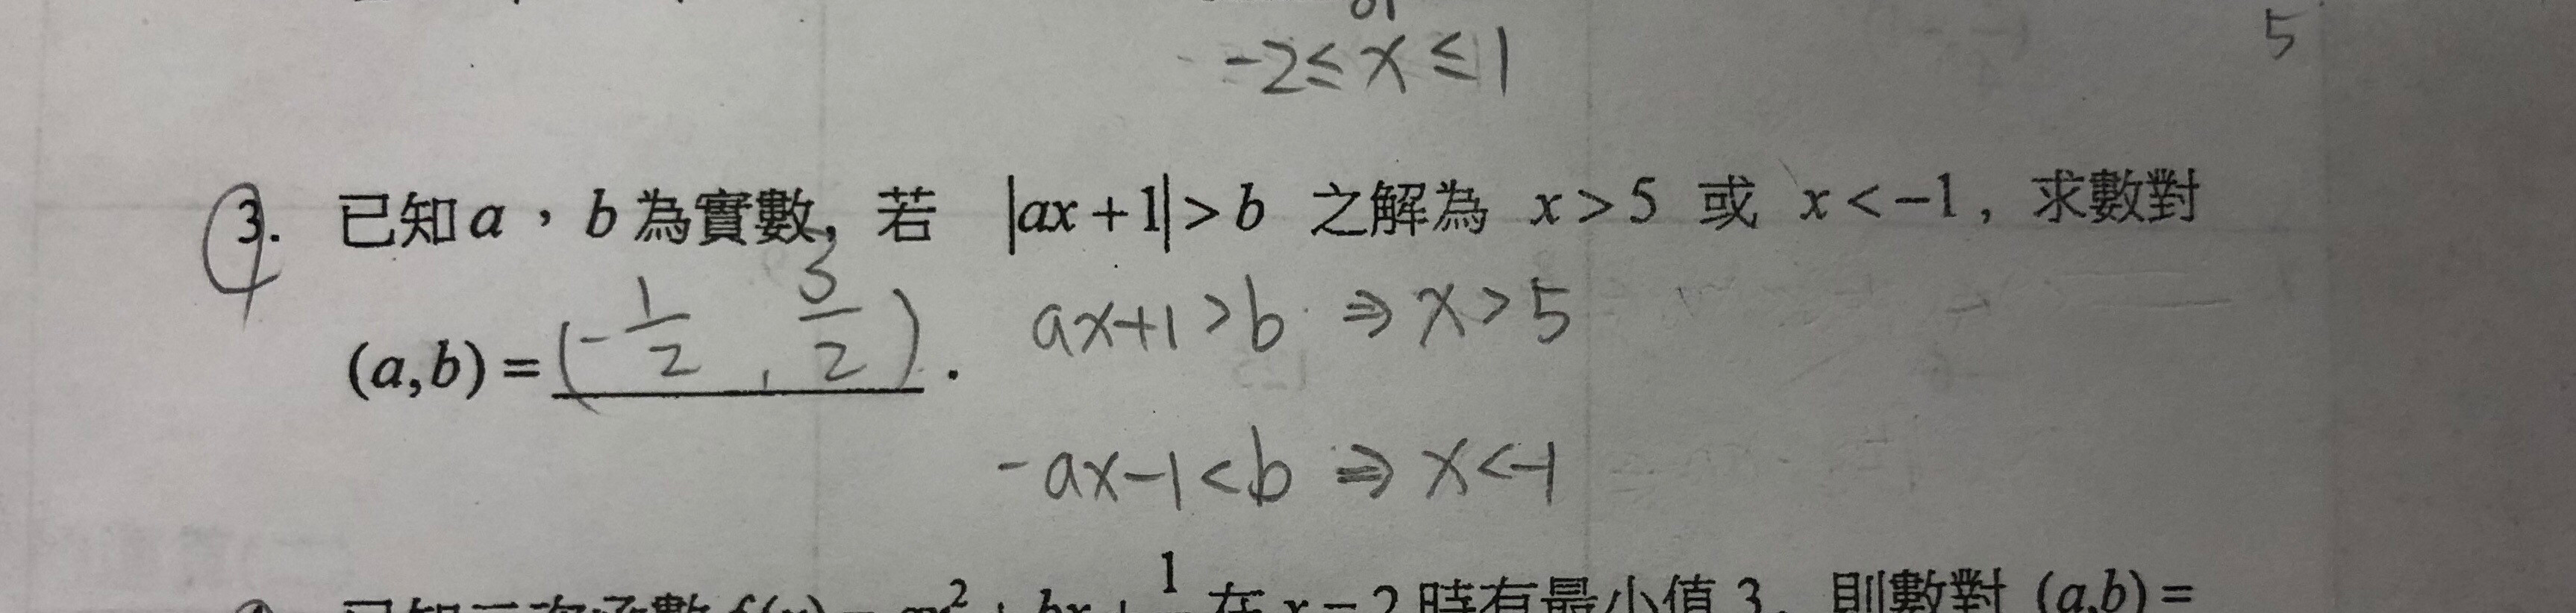 -2≤x≤1
5
3. 已知a，b為實數，若 |ax+1|>b 之解為 x>5 或 x<-1，求數對
(a,b)=(-1/2, 3/2).
ax+1>b ⇒ x>5
-ax-1<b ⇒ x<-1
在 x=2 時有最小值 3，則數對 (a,b)=